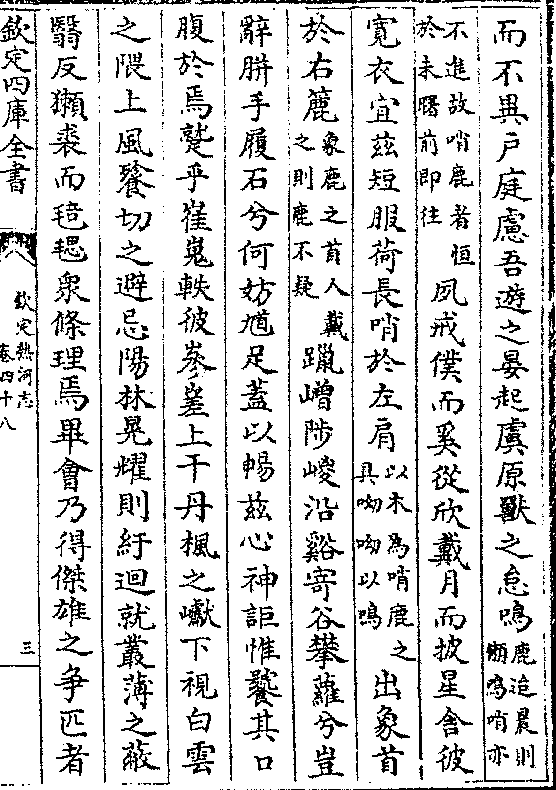 而不異戸庭慮吾遊之晏起虞原獸之怠鳴鹿迨晨則懶鳴哨亦
不進故哨鹿者恒於未曙前即往夙戒僕而奚從欣戴月而披星舍彼
寛衣宜兹短服荷長哨於左肩以木為哨鹿之具呦呦以鳴出象首
於右簏象鹿之首人戴之則鹿不疑躐嶒陟崚沿谿寄谷攀蘿兮豈
辭胼手履石兮何妨馗足蓋以暢兹心神詎惟饜其口
腹於焉蹵乎嵬嵬軼彼嵾嵳上干丹楓之巘下視白雲
之隈上風餮切之避忌陽林晃耀則紆迴就叢薄之蔽
翳反獺裘而毰毸衆條理焉畢會乃得傑雄之爭匹者
欽定四庫全書
欽定熱河志
卷四十八
三